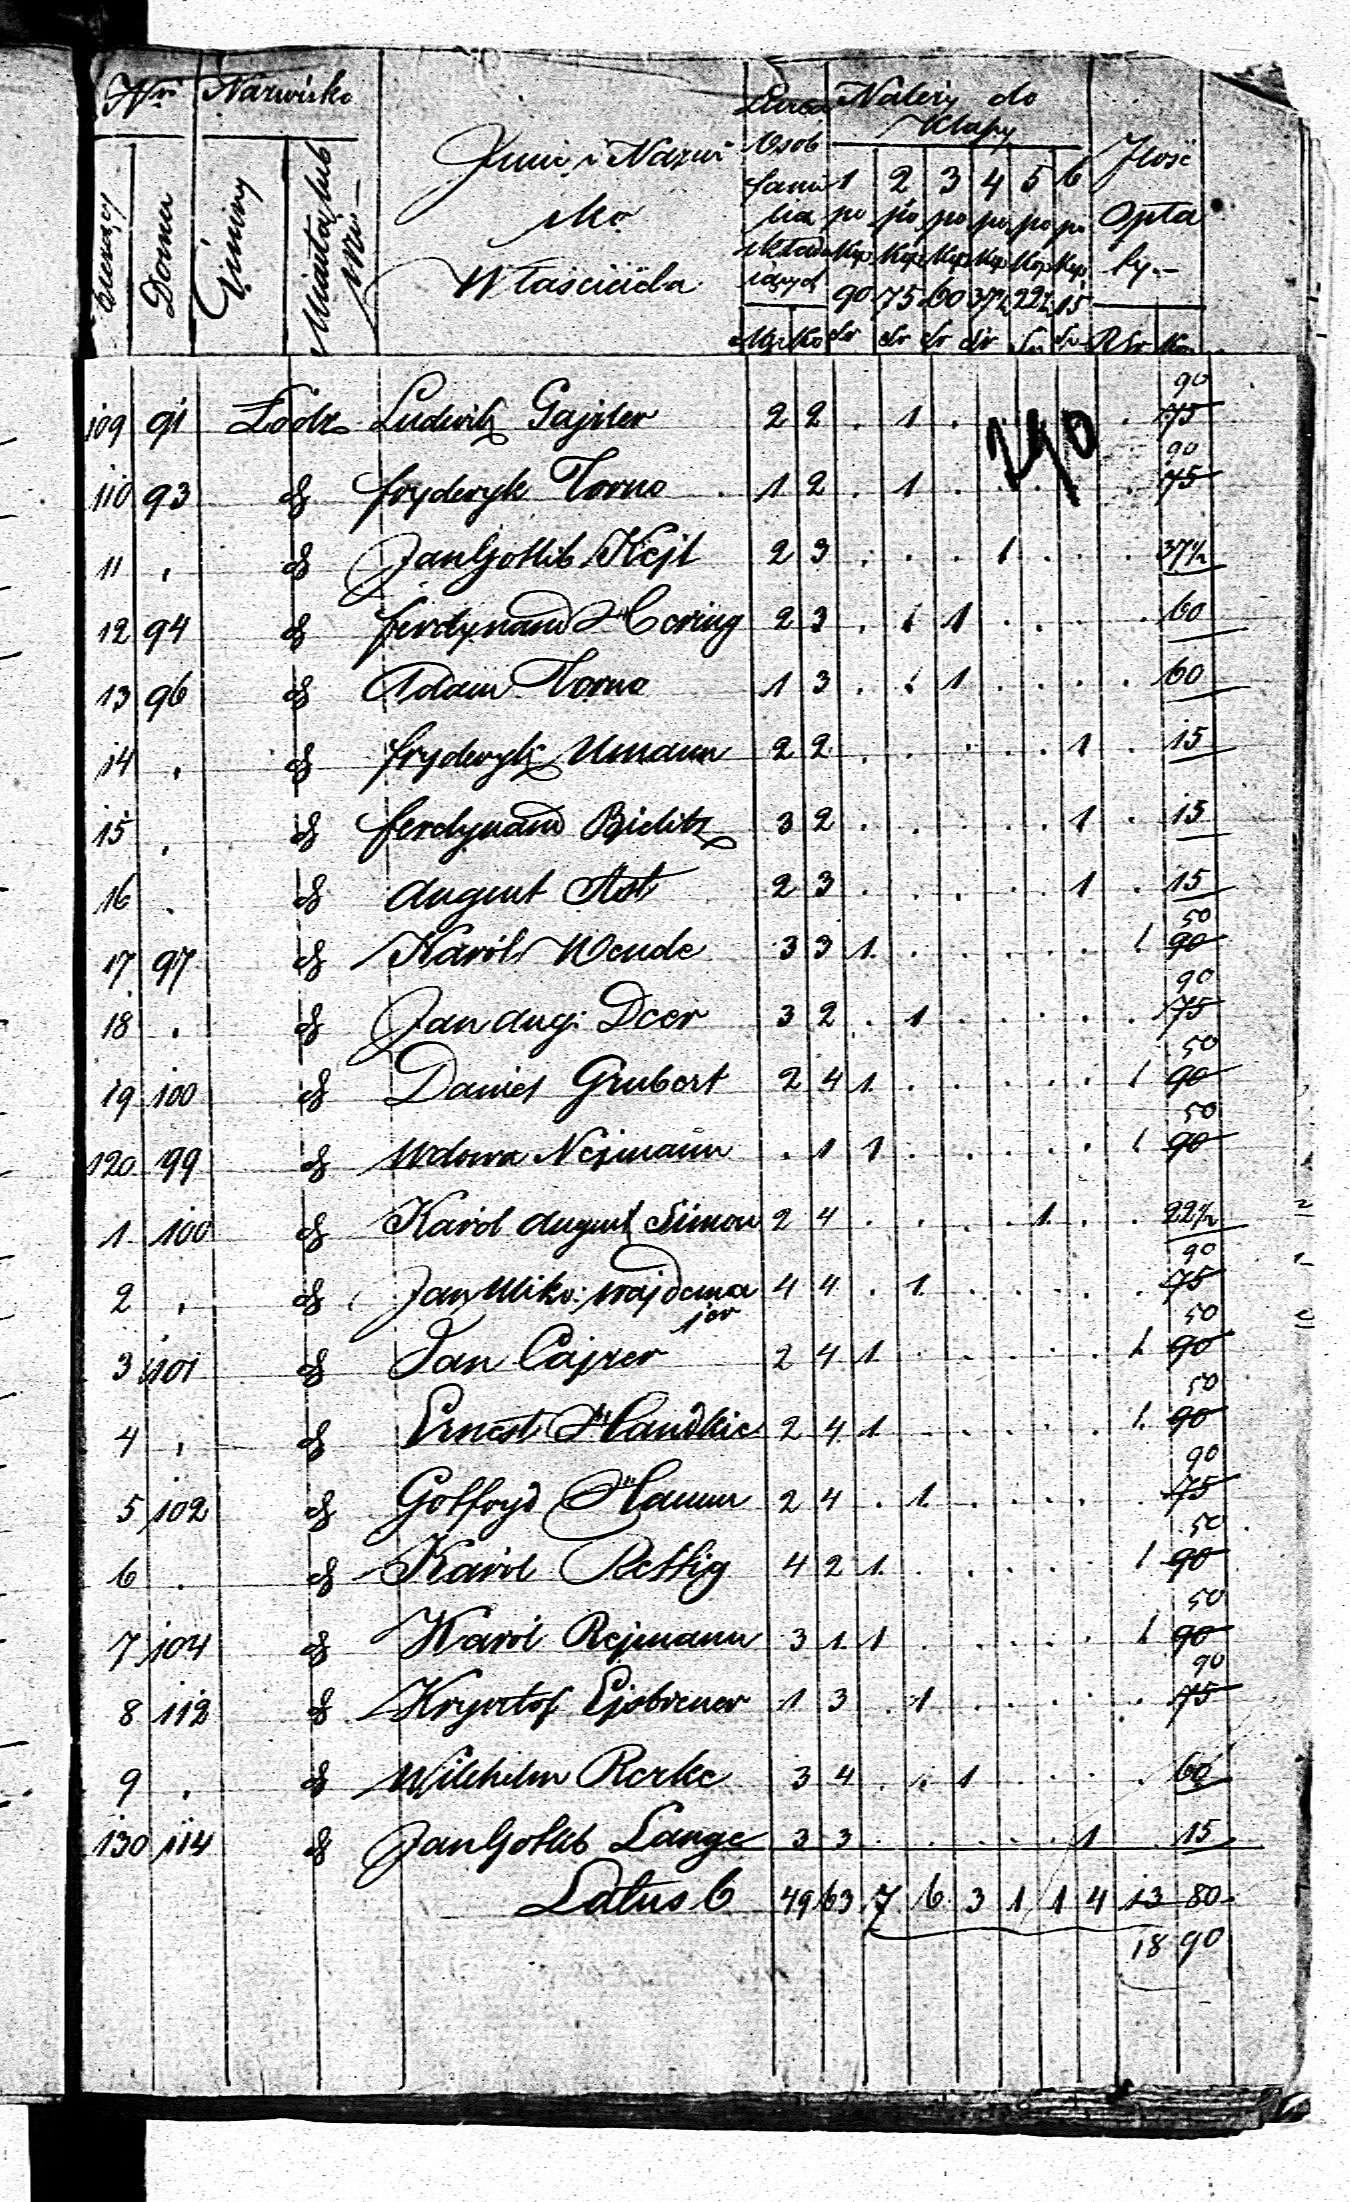 Nri Nazwisko Liczba Należy do
Klassy
bieżący Domu Gminy Miasta lub wsi Imie i Nazwi Osob 1 2 3 4 5 6 Ilość
sko fami po po po po po po Opła
Właściciela lia Kop Kop Kop Kop Kop Kop ty.-
90 75 60 37½ 22½ 15
Mę Ko Sr Sr Sr Sr Sr Sr RSr Kop
90
109 91 Łodz Ludwik Gajzler 2 2 . 1 . . 75
240
90
110 93 d Fryderyk Torno 1 2 . 1 . . 75
11 . d Jan Gottlib Kejl 2 3 . . . 1 . . . 37½
12 94 d Ferdynand Hering 2 3 . . 1 . . . . 60
13 96 d Adam Torno 1 3 . . 1 . . . . 60
14 . d Fryderyk Umann 2 2 . . . . . 1 . 15
15 . d Ferdynand Bielitz 3 2 . . . . . 1 . 15
16 . d August Ast 2 3 . . . . . 1 . 15
50
17 97 d Karól Wende 3 3 1 . . . . . 1 90
90
18 . d Jan Aug: Deer 3 2 . 1 . . . . . 75
50
19 100 d Daniel Grubert 2 4 1 . . . . . 1 90
50
120 99 d Wdowa Nejmann . 1 1 . . . . . 1 90
1 100 d Karól August Simon 2 4 . . . . 1 . . 22½
90
2 . d Jan Miko: Wajdema 4 4 . 1 . . . . . 75
jer
50
3 101 d Jan Cajzer 2 4 1 . . . . . 1 90
50
4 . d Ernest Handkie 2 4 1 . . . . . 1 90
90
5 102 d Gotfryd Hamm 2 4 . 1 . . . . . 75
50
6 . d Karól Rettig 4 2 1 . . . . . 1 90
50
7 104 d Karól Rejmann 3 1 1 . . . . . 1 90
90
8 112 d Krysztof Ejsbrener 1 3 . 1 . . . . . 75
9 . d Wilhelm Rerke 3 4 . . 1 . . . . 60
130 114 d Jan Gottlib Lange 3 3 . . . . . 1 . 15
Latus 6 49 63 7 6 3 1 1 4 13 80
18 90